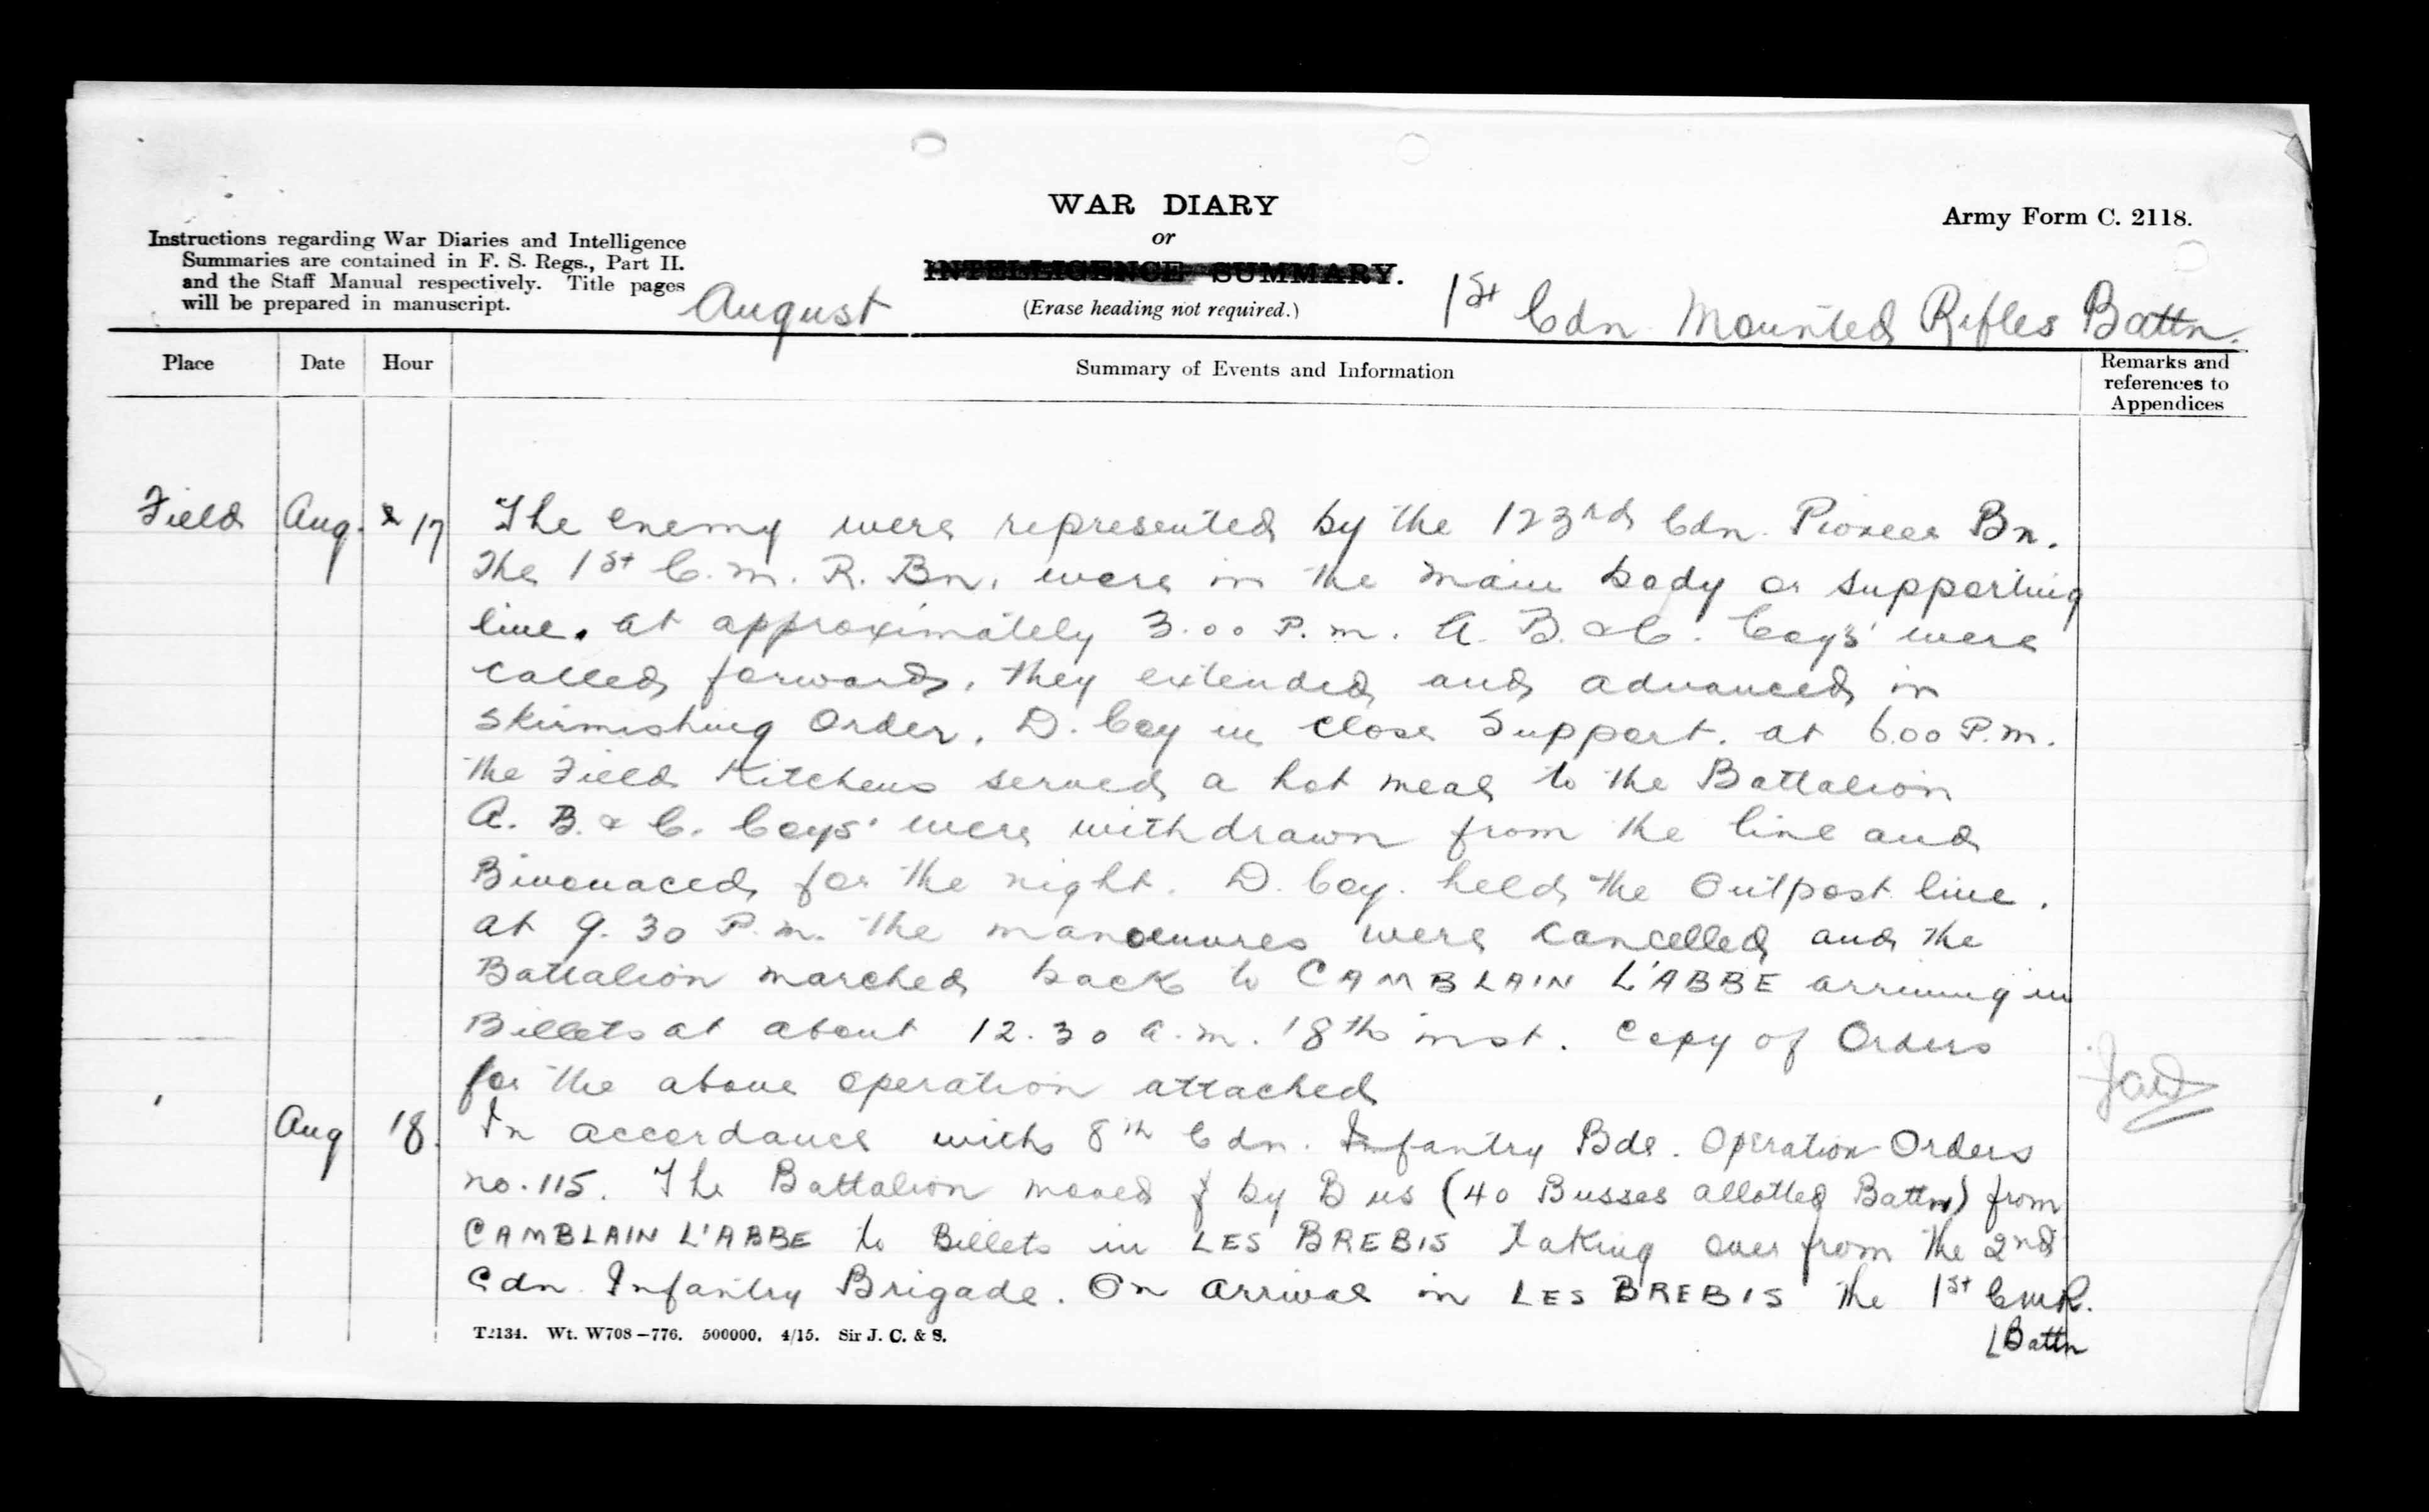 WAR DIARY
or
INTELLIGENCE SUMMARY.
(Erase heading not required.)
Army Form C. 2118.
Instructions regarding War Diaries and Intelligence
Summaries are contained in F. S. Regs., Part II.
and the Staff Manual respectively. Title pages
will be prepared in manuscript.
August
1st Cdn Mounted Rifles Battn.
Place Date Hour Summary of Events and Information Remarks and references to Appendices
Field Aug. 17 The enemy were represented by the 123rd Cdn. Pioneer Bn.
The 1st C.M.R. Bn. were in the main body or supporting
line. at approximately 3.00 P.m. A. B. & C. Coys' were
called forward, they extended and advanced in
Skirmishing Order, D. Coy in close Support. at 6.00 P.m.
the Field Kitchens served a hot meal to the Battalion
A. B. & C. Coys' were withdrawn from the line and
Bivouaced for the night. D. Coy. held the Outpost line.
at 9.30 P.m. the manoeuvres were cancelled and the
Battalion marched back to CAMBLAIN L'ABBE arriving in
Billets at about 12.30 a.m. 18th inst. Copy of Orders
for the above operation attached
Aug 18. In accordance with 8th Cdn. Infantry Bde. Operation Orders
no. 115. The Battalion moved by Bus (40 Busses allotted Battn) from
CAMBLAIN L'ABBE to Billets in LES BREBIS taking over from the 2nd
Cdn. Infantry Brigade. On arrival in LES BREBIS the 1st CMR.
Battn
T2134. Wt. W708—776. 500000. 4/15. Sir J. C. & S.